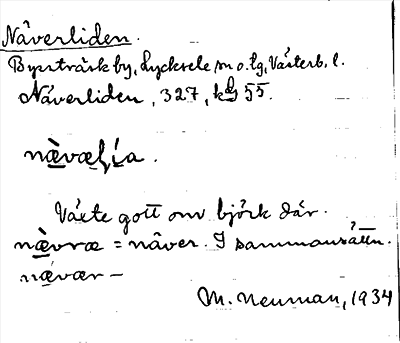 Näverliden.
Byssträsk by, Lycksele m o. tg, Västerb. l.
Näverliden, 327, kbl 55.
nævæl̥ia.
Växte gott om björk där.
nævræ = näver. I sammansättn.
nævær –
M. Neuman, 1934